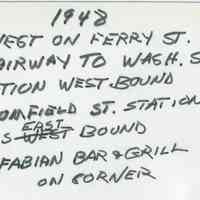 1948
WEST ON FERRY ST.
AIRWAY TO WASH. S
TION WEST BOUND
OMFIELD ST. STATION
EAST
S WEST BOUND
FABIAN BAR & GRILL
ON CORNER